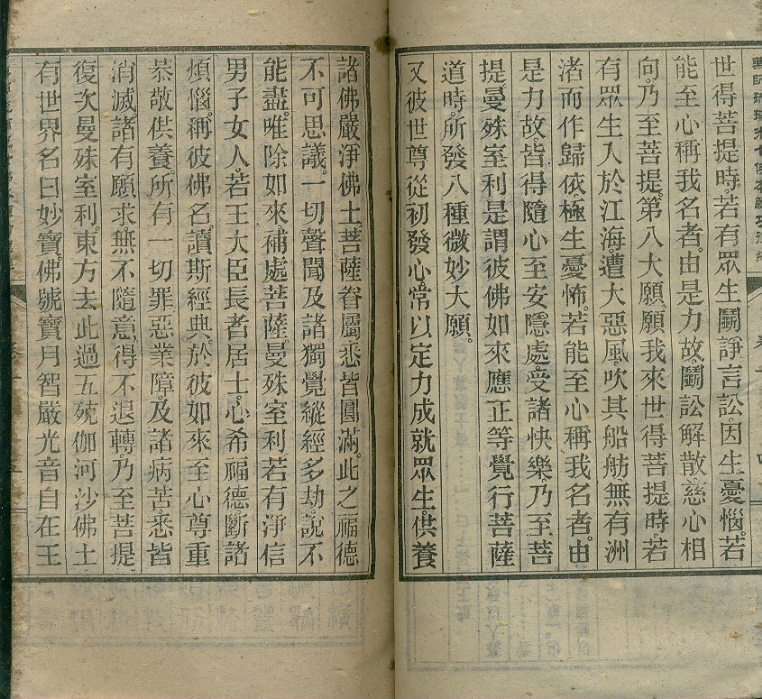 世得菩提時。若有眾生鬭諍言訟因生憂惱。若
能至心稱我名者。由是力故。鬭訟解散慈心相
向。乃至菩提。第八大願。願我來世得菩提時。若
有眾生入於江海遭大惡風吹其船舫無有洲
渚而作歸依極生憂怖。若能至心稱我名者。由
是力故皆得隨心至安隱處受諸快樂。乃至菩
提。曼殊室利是謂彼佛如來應正等覺行菩薩
道時。所發八種微妙大願。
又彼世尊從初發心常以定力成就眾生。供養
諸佛嚴淨佛土菩薩眷屬悉皆圓滿。此之福德
不可思議。一切聲聞及諸獨覺縱經多劫說不
能盡。唯除如來補處菩薩。曼殊室利若有淨信
男子女人。若王大臣長者居士。心希福德斷諸
煩惱。稱彼佛名。讀斯經典。於彼如來至心尊重
恭敬供養。所有一切罪惡業障。及諸病苦。悉皆
消滅諸有願求無不隨意。得不退轉。乃至菩提。
復次曼殊室利。東方去此過五殑伽河沙佛土
有世界名曰妙寶。佛號寶月智嚴光音自在王